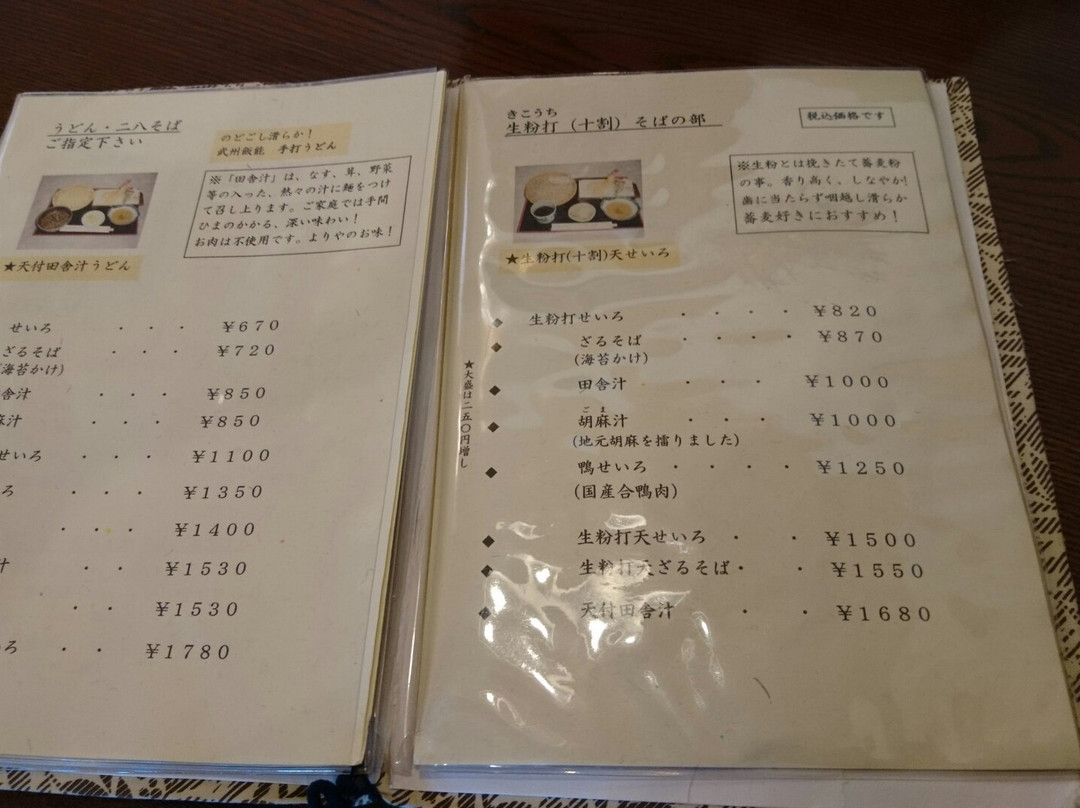 うどん・二八そば
ご指定下さい
のどごし滑らか！
武州飯能 手打うどん
※「田舎汁」は、なす、茸、野菜
等の入った、熱々の汁に麺をつけ
て召し上ります。ご家庭では手間
ひまのかかる、深い味わい！
お肉は不使用です。よりやのお味！
★天付田舎汁うどん
せいろ ・・・ ￥670
ざるそば ・・・ ￥720
(海苔かけ)
舎汁 ・・・ ￥850
麻汁 ・・・ ￥850
せいろ ・・・ ￥1100
ろ ・・・ ￥1350
・・・ ￥1400
汁 ・・・ ￥1530
・・・ ￥1530
ろ ・・ ￥1780
きこうち
生粉打（十割）そばの部
税込価格です
※生粉とは挽きたて蕎麦粉
の事。香り高く、しなやか!
歯に当たらず咽越し滑らか
蕎麦好きにおすすめ！
★生粉打(十割)天せいろ
★大盛は二五〇円増し
◆ 生粉打せいろ ・・・・ ￥820
◆ ざるそば ・・・・ ￥870
(海苔かけ)
◆ 田舎汁 ・・・・ ￥1000
ごま
◆ 胡麻汁 ・・・・ ￥1000
(地元胡麻を擂りました)
◆ 鴨せいろ ・・・・ ￥1250
(国産合鴨肉)
◆ 生粉打天せいろ ・・ ￥1500
◆ 生粉打天ざるそば・・ ￥1550
◆ 天付田舎汁 ・・ ￥1680